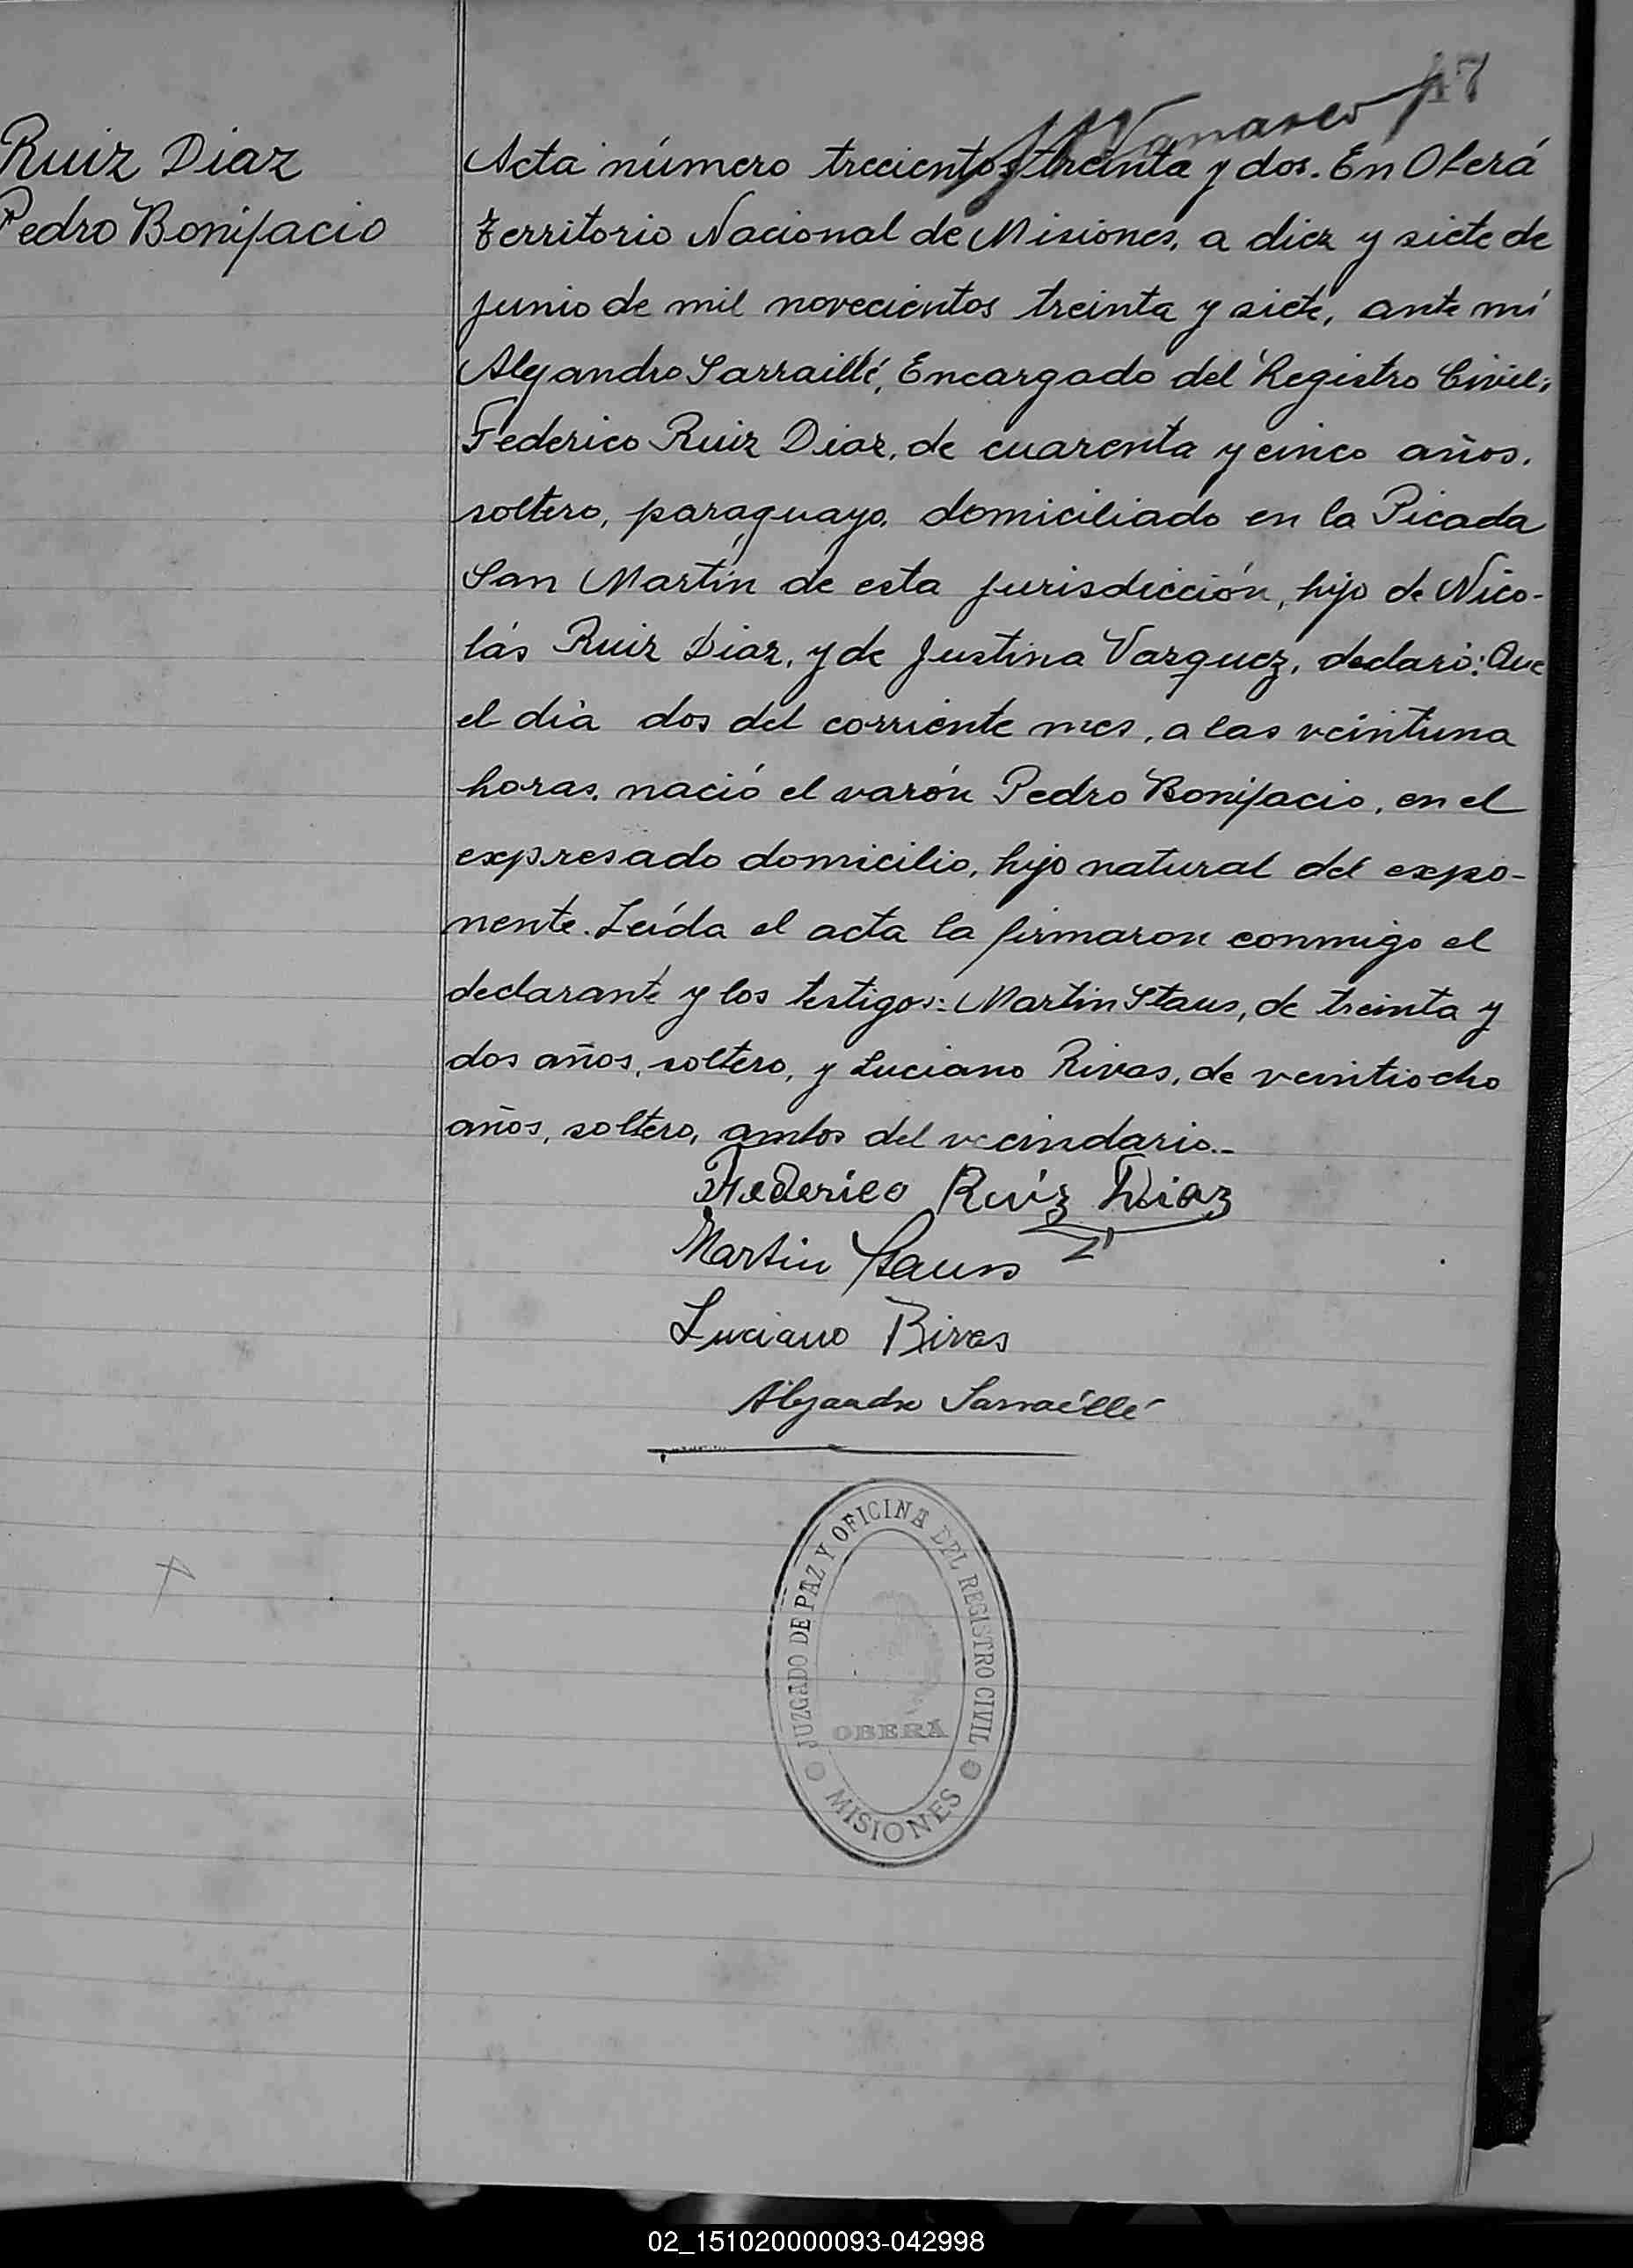 47
Ruiz Diaz
Pedro Bonifacio
Acta número trecientos treinta y dos. En Oberá
territorio Nacional de Misiones, a diez y siete de
junio de mil novecientos treinta y siete, ante mí
Alejandro Sarraillé, Encargado del Registro Civil;
Federico Ruiz Diaz, de cuarenta y cinco años,
soltero, paraguayo, domiciliado en la Picada
San Martín de esta jurisdicción, hijo de Nico-
lás Ruiz Diaz, y de Justina Vazquez, declaró: Que
el día dos del corriente mes, a las veintiuna
horas, nació el varón Pedro Bonifacio, en el
expresado domicilio, hijo natural del expo-
nente. Leída el acta la firmaron conmigo el
declarante y los testigos: Martin Staus, de treinta y
dos años, soltero, y Luciano Rivas, de veintiocho
años, soltero, ambos del vecindario.-
Federico Ruiz Diaz
Martin Stauss
Luciano Rivas
Alejandro Sarraillé
JUZGADO DE PAZ Y OFICINA DEL REGISTRO CIVIL
OBERA
MISIONES
02_151020000093-042998